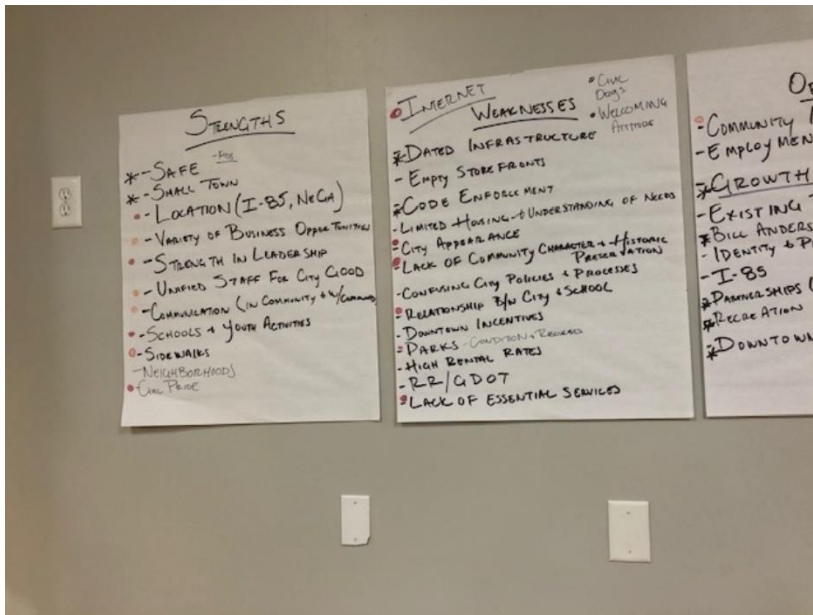 STRENGTHS
*-SAFE
*-SMALL TOWN
-LOCATION (I-85, NEGA)
-VARIETY OF BUSINESS OPPORTUNITIES
-STRENGTH IN LEADERSHIP
-UNIFIED STAFF FOR CITY GOOD
-COMMUNICATION (IN COMMUNITY & W/
-SCHOOLS & YOUTH ACTIVITIES
-SIDEWALKS
-NEIGHBORHOODS
CIVIC PRIDE
INTERNET
WEAKNESSES
• CIVIC
• WELCOMING
ATTITUDE
*DATED INFRASTRUCTURE
-EMPTY STORE FRONTS
*CODE ENFORCEMENT
-LIMITED HOUSING & UNDERSTANDING OF NEEDS
-CITY APPEARANCE
-LACK OF COMMUNITY CHARACTER & HISTORIC
PRESERVATION
-CONFUSING CITY POLICIES & PROCESSES
-RELATIONSHIP B/W CITY & SCHOOL
-DOWNTOWN INCENTIVES
-PARKS -CONDITION &
-HIGH RENTAL RATES
-RR/GDOT
-LACK OF ESSENTIAL SERVICES
-COMMUNITY
-EMPLOYMEN
*GROWTH
-EXISTING
*BILL ANDERS
-IDENTITY & P
-I-85
*PARTNERSHIPS (
*RECREATION
*DOWNTOWN